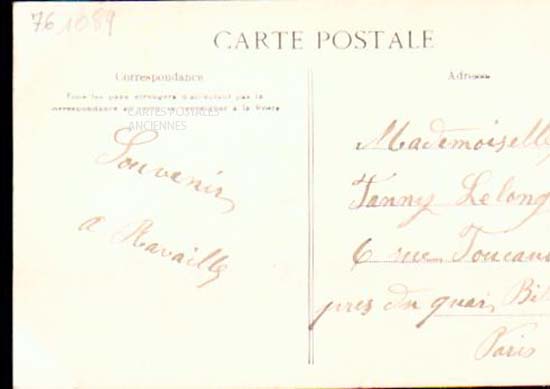 76 1089
CARTE POSTALE
Correspondance
Tous les pays étrangers n'acceptent pas la
correspondance au verso, se renseigner à la Poste
CARTES POSTALES
ANCIENNES
Souvenir
a Ravailly
Adresse
Mademoiselle
Fanny Lelong
6 rue
près du quai
Paris